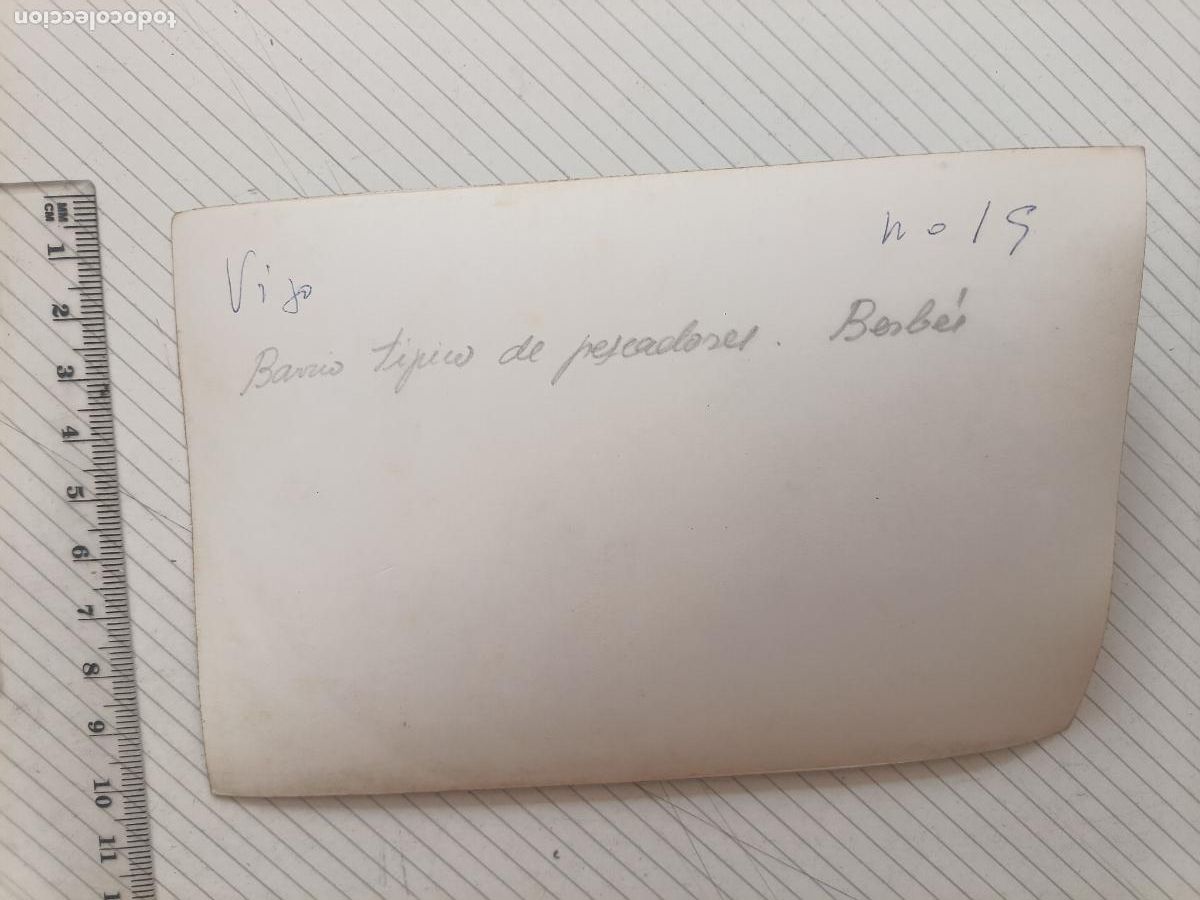 todocoleccion
Vigo
no 19
Barrio típico de pescadores. Berbés
MM
CM
1
2
3
4
5
6
7
8
9
10
11